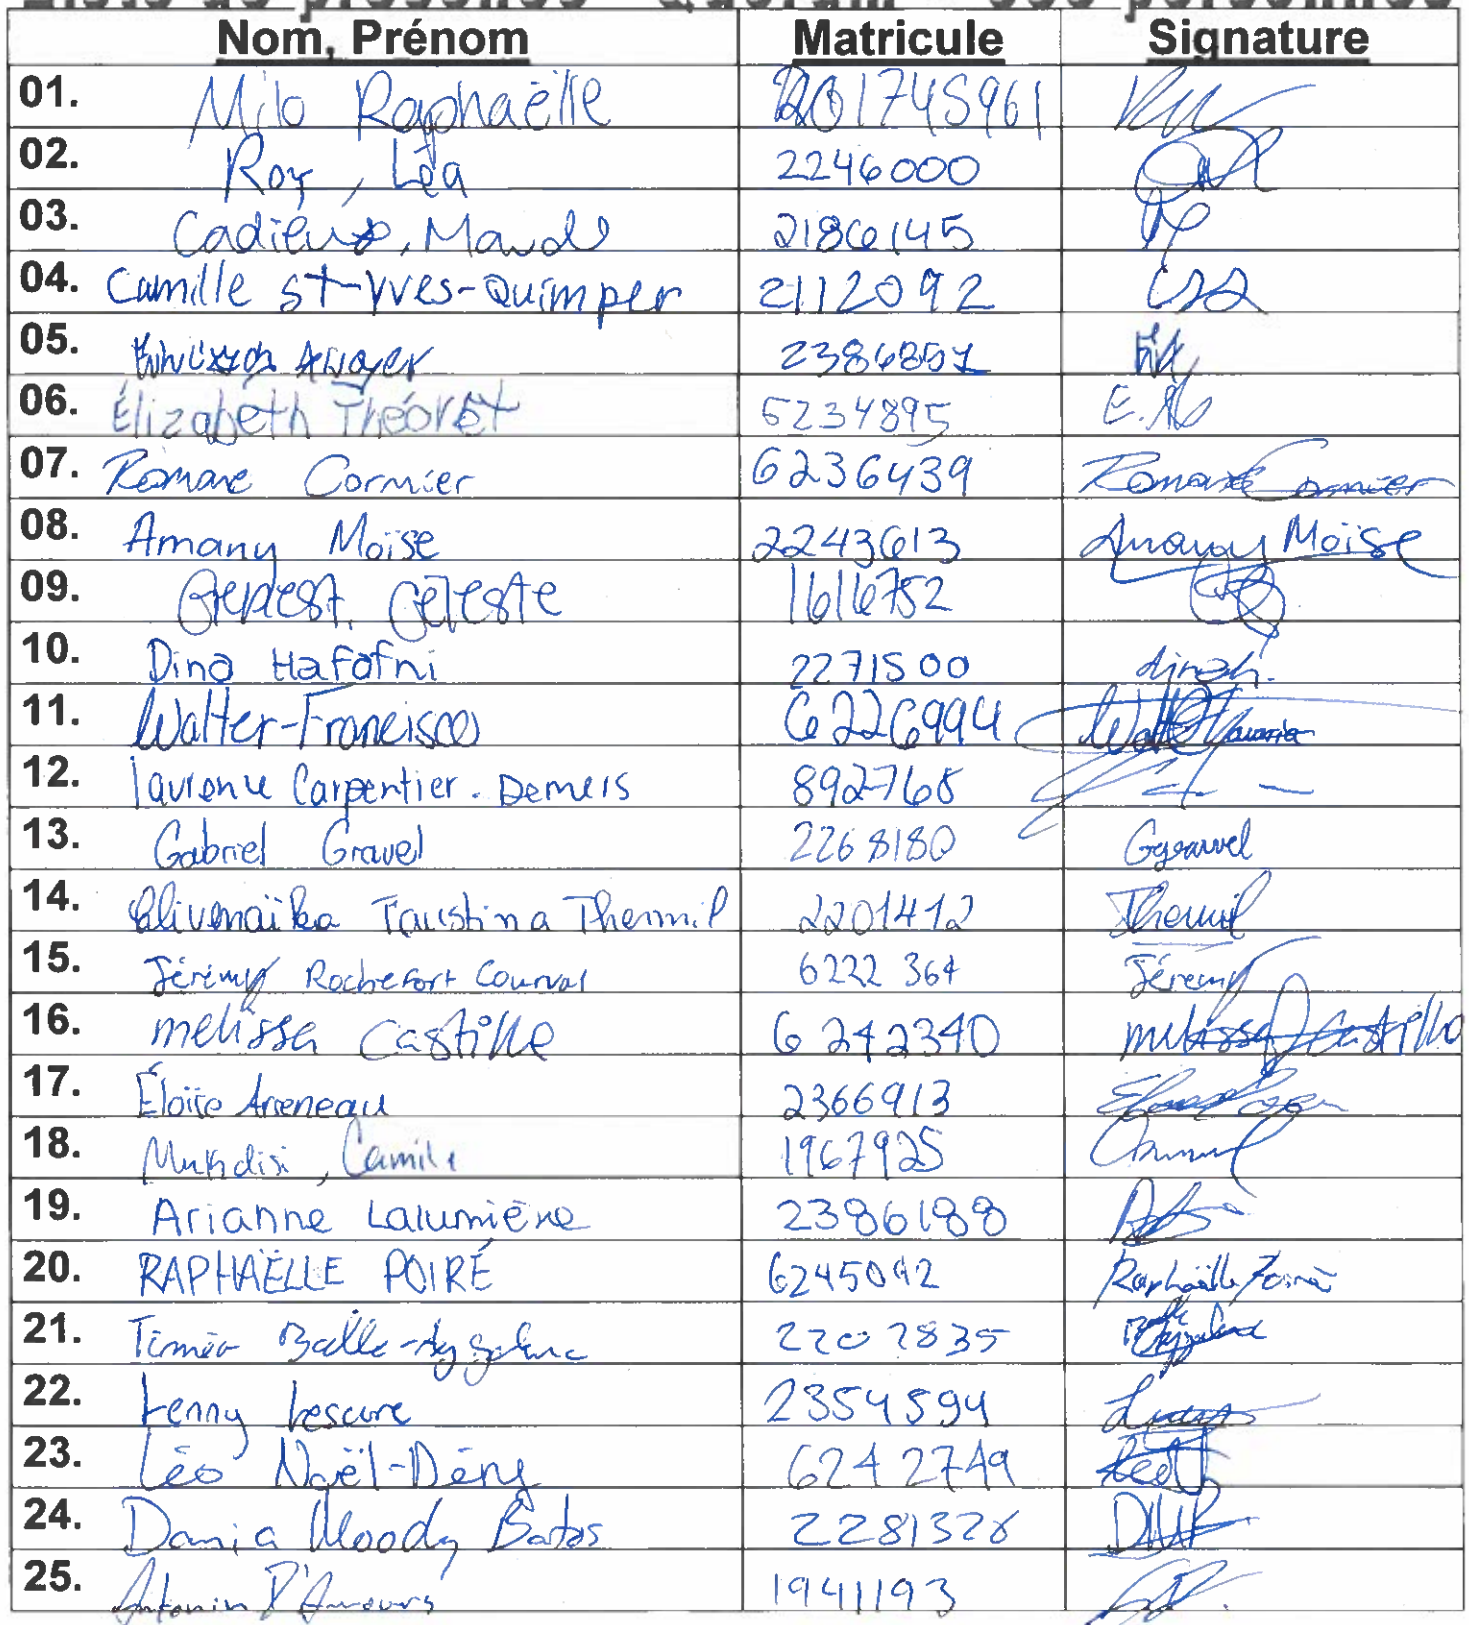 Liste de présence - Quorum
Nom, Prénom Matricule Signature
01. Milo Raphaëlle 201745961
02. Roy, Léa 2246000
03. Cadieux, Maude 2186145
04. Camille St-Yves-Quimper 2112092
05. 2386851
06. Élizabeth Théorêt 6234895
07. Romane Cormier 6236439 Romane Cormier
08. Amany Moïse 2243613 Amany Moïse
09. Genest, Céleste 1616752
10. Dina Hafafni 2271500
11. Walter-Francisco 6226994
12. Laurence Carpentier-Demers 892768
13. Gabriel Gravel 2268180
14. Olivenaïka Faustina Thermil 2201412 Thermil
15. Jérémy Rochefort Courval 6222364 Jérémy
16. melissa Castillo 6242340 melissa Castillo
17. Éloïse 2366913
18. Camille 1967925
19. Arianne Lalumière 2386188
20. RAPHAËLLE POIRÉ 6245092 Raphaëlle Poiré
21. 2202835
22. Lenny Lescure 2354594
23. Léo Noël-Dény 6242749
24. Dania Moody Batos 2281328
25. Antonin D'Amours 1941193